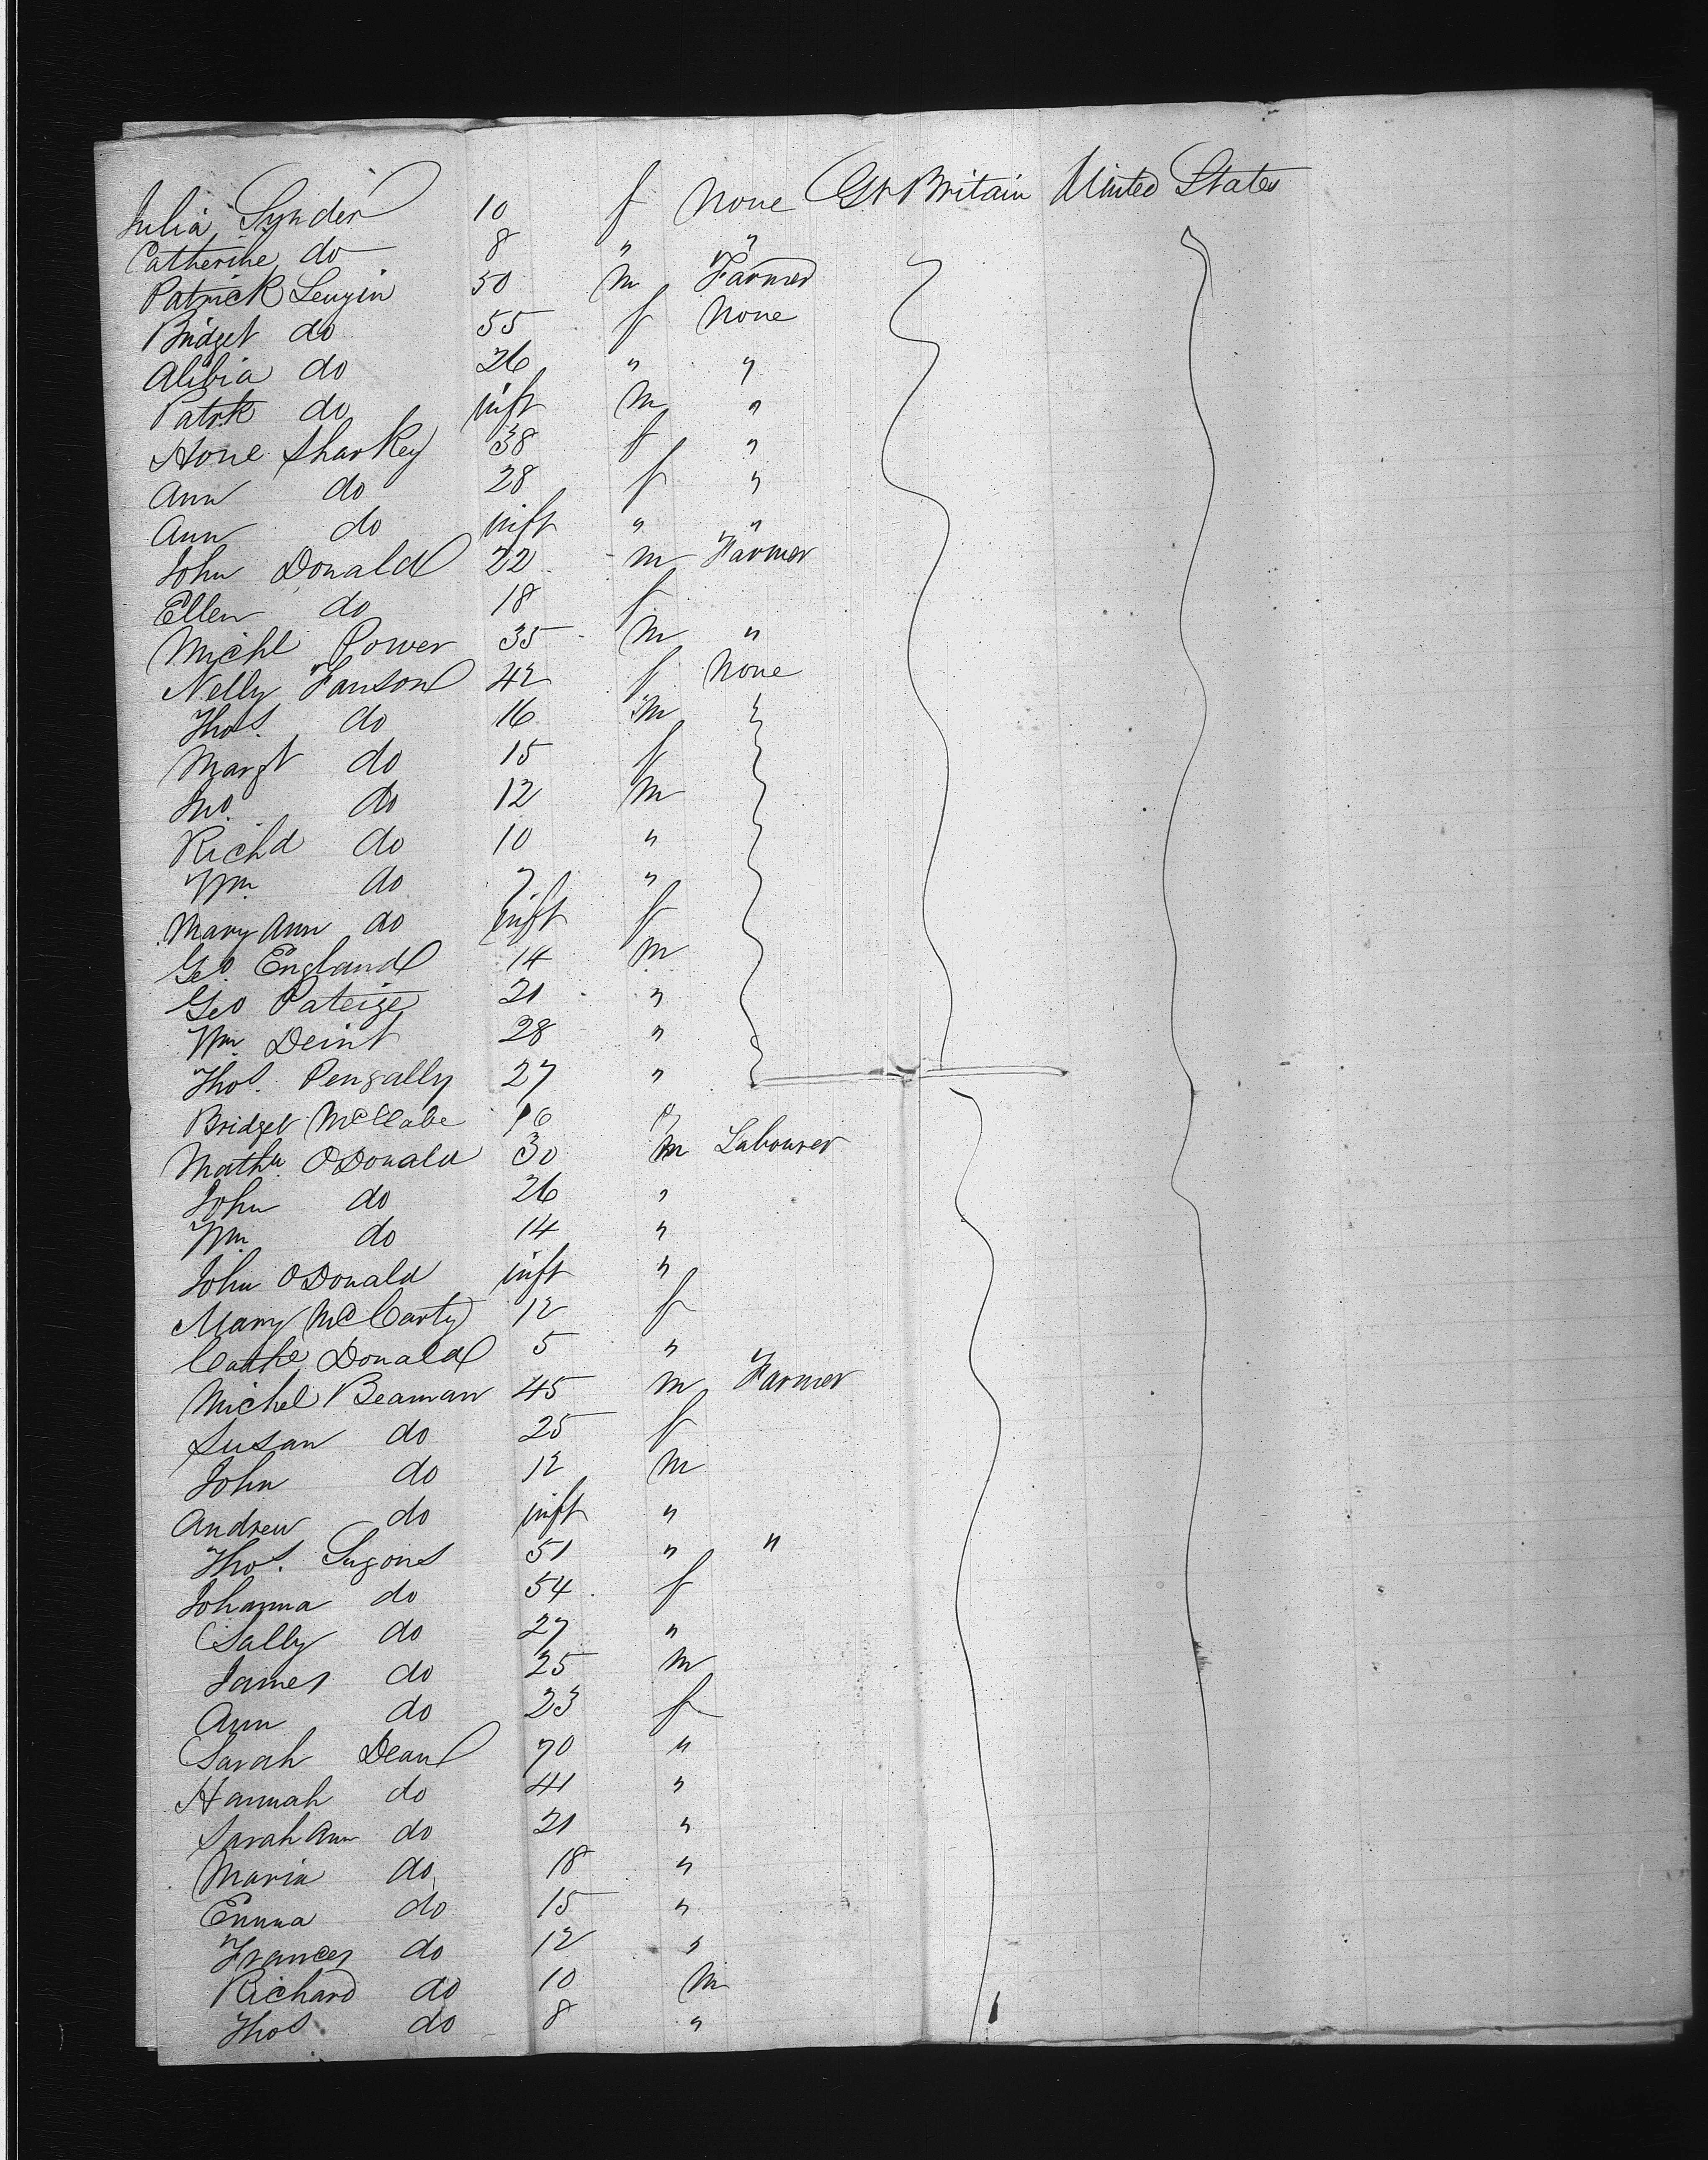 Julia Synder 10 f None Gt Britain United States
Catherine do 8 " "
Patrick Lengin 50 m Farmer
Bridget do 55 f None
Alibia do 26 " "
Patrk do inft m "
Hone Sharkey 38 f "
Ann do 28 f "
Ann do inft " "
John Donald 22 m Farmer
Ellen do 18 f
Michl Power 35 m "
Nelly Fanson 42 f None
Thos. do 16 m
Margt do 15 f
Jno. do 12 m
Richd do 10 "
Wm. do 7 "
Mary Ann do inft f
Geo. England 14 m
Geo Pateige 21 "
Wm. Deint 28 "
Thos. Pengally 27 "
Bridget McCabe 16 f
Mathw ODonald 30 m Labourer
John do 26 "
Wm. do 14 "
John ODonald inft "
Mary McCarty 12 f
Cathe Donald 5 "
Michel Beaman 45 m Farmer
Susan do 25 f
John do 12 m
Andrew do inft "
Thos. Sugons 51 " "
Johanna do 54 f
Sally do 27 "
James do 25 m
Ann do 23 f
Sarah Dean 70 "
Hannah do 41 "
Sarah Ann do 21 "
Maria do 18 "
Emma do 15 "
Frances do 12 "
Richard do 10 m
Thos do 8 "